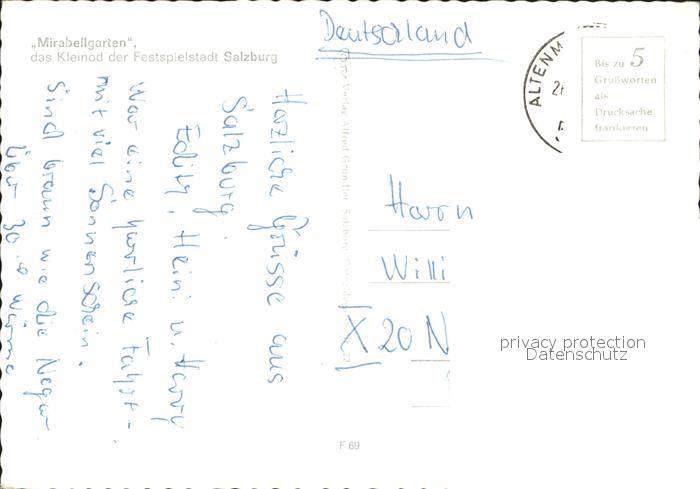 „Mirabellgarten“,
das Kleinod der Festspielstadt Salzburg
Deutschland
ALTENM
Bis zu 5
Grußworten
als
Drucksache
frankieren
Herzliche Grüsse aus
Salzburg.
Edith, Heini u. Harry
War eine herrliche Fahrt -
mit viel Sonnenschein.
Sind braun wie die Neger.
Über 30° Wärme
Herrn
Willi
X 20 N
privacy protection
Datenschutz
F 69